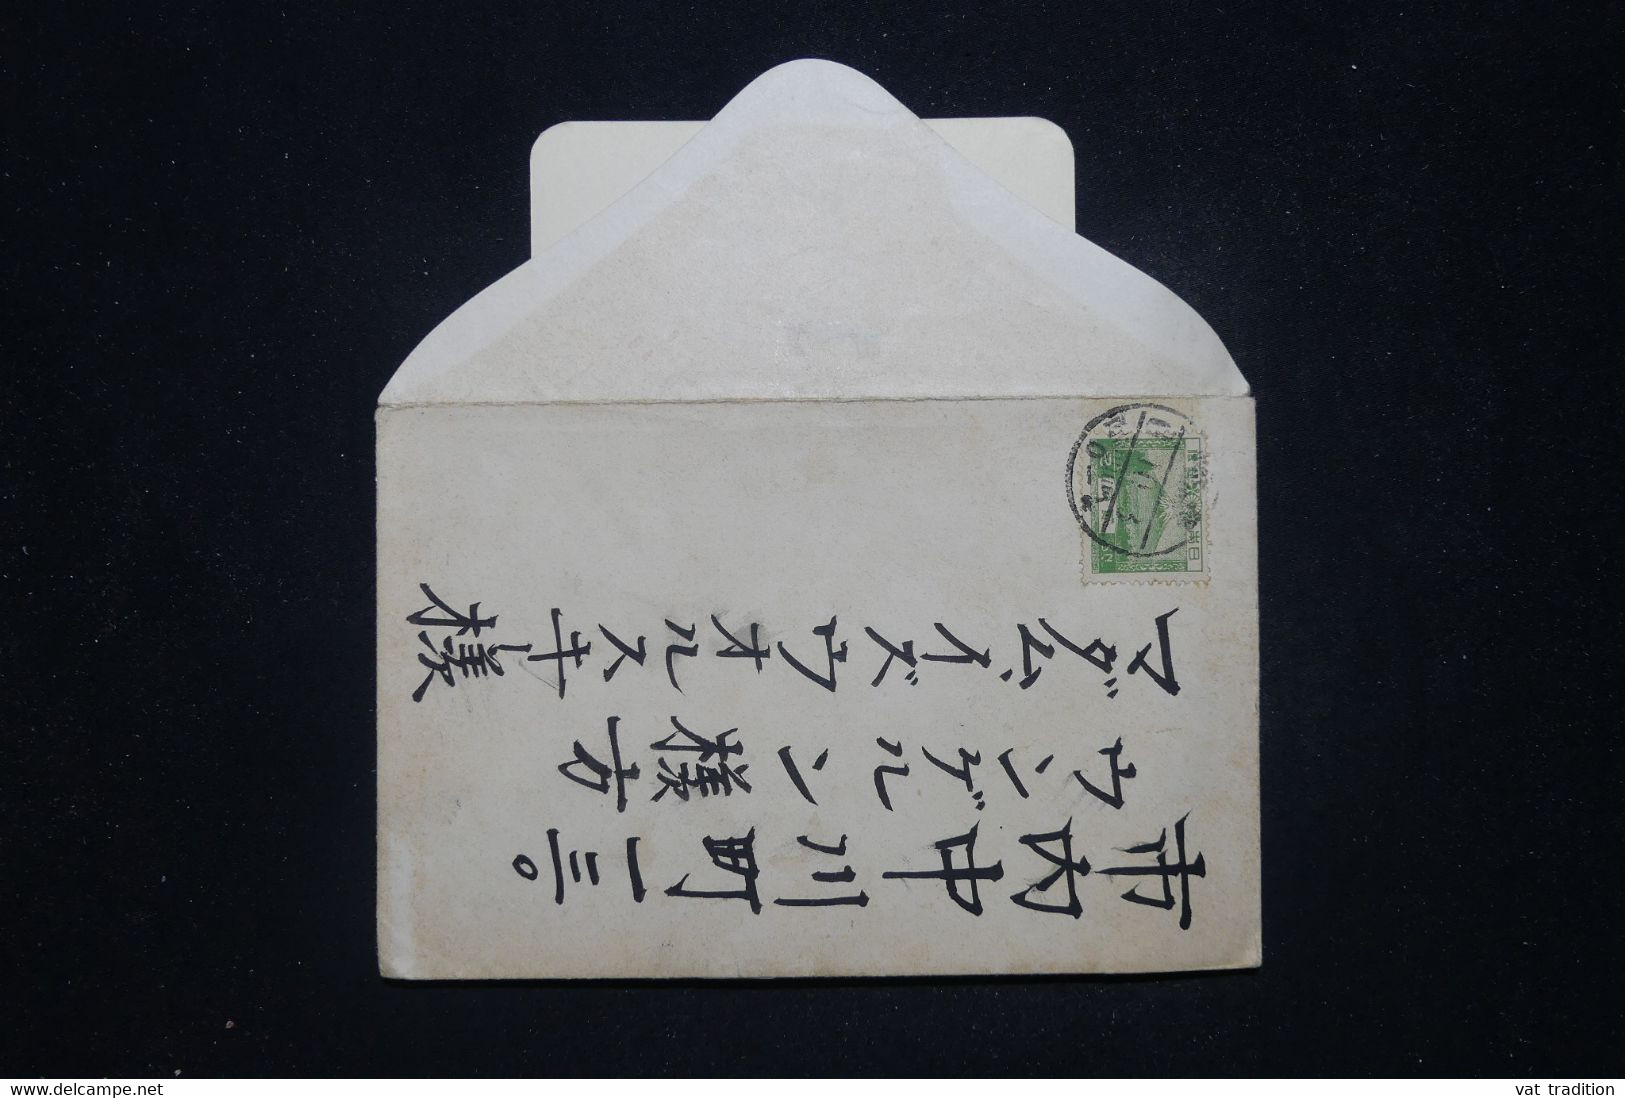 市内中川町一三〇
ウンゲルン様方
マダム、イズウオルスキー様
www.delcampe.net
vat tradition